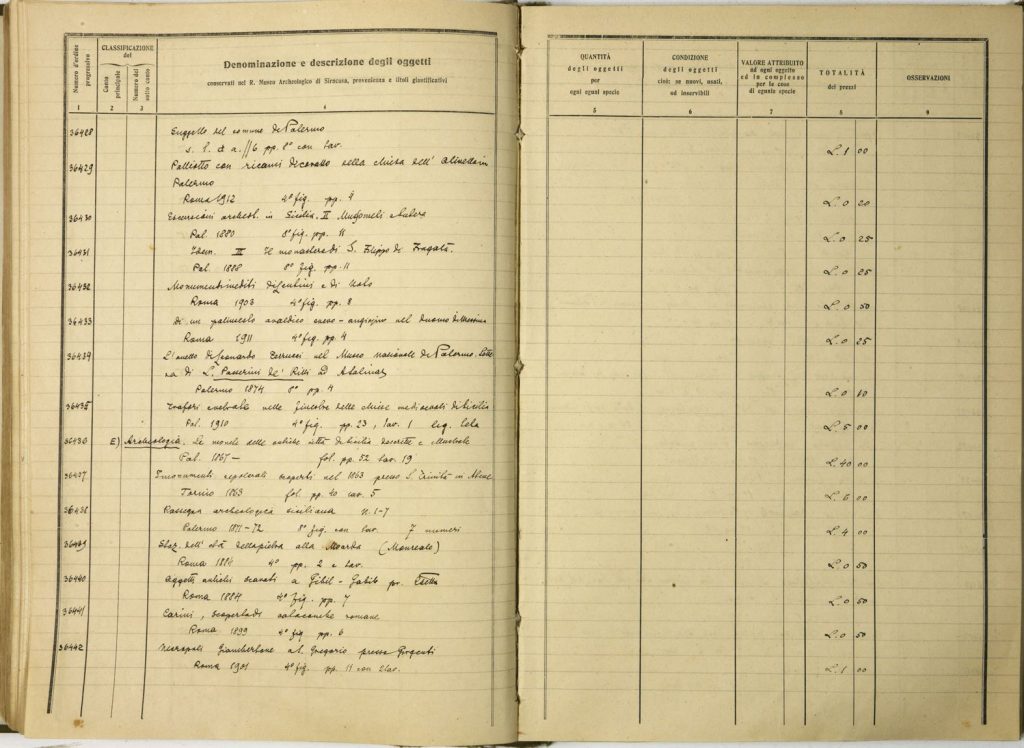 Numero d'ordine progressivo
CLASSIFICAZIONE
del
Conto principale
Numero del sotto conto
Denominazione e descrizione degli oggetti
conservati nel R. Museo Archeologico di Siracusa, provenienza e titoli giustificativi
1 2 3 4
QUANTITÀ
degli oggetti
per
ogni egual specie
5
CONDIZIONE
degli oggetti
cioè: se nuovi, usati,
od inservibili
6
VALORE ATTRIBUITO
ad ogni oggetto
ed in complesso
per le cose
di eguale specie
7
TOTALITÀ
dei prezzi
8
OSSERVAZIONI
9
36428 Suggello del comune di Palermo
s. l. et a. // 6 pp. 8º con tav. L. 1 00
36429 Palliotto con ricami di corallo della chiesa dell'
Palermo
Roma 1912 4º fig. pp. 4 L. 0 20
36430 Escursioni archeol. in Sicilia. II Mussomeli e Sutera
Pal. 1880 8º fig. pp. 11 L. 0 25
36431 Idem. III Il monastero di S. Filippo di Fragalà.
Pal. 1888 8º fig. pp. 11 L. 0 25
36432 Monumenti inediti di Lentini e di Noto
Roma 1903 4º fig. pp. 8 L. 0 50
36433 Di un araldico svevo - angioino nel duomo di Messina
Roma 1911 4º fig. pp. 4 L. 0 25
36434 L'anello di Leonardo nel Museo nazionale di Palermo. Lette
ra di L. Passerini de' Rilli ad
Palermo 1874 8º pp. 4 L. 0 10
36435 Trafori nelle finestre delle chiese medioevali di Sicilia
Pal. 1910 4º fig. pp. 23, tav. 1 leg. tela L. 5 00
36436 E) Archeologia. Le monete delle antiche città di Sicilia descritte e illustrate
Pal. 1867 - fol. pp. 52 tav. 19 L. 40 00
36437 I monumenti sepolcrali scoperti nel 1863 presso S. Trinità in Atene
Torino 1863 fol. pp. 40 tav. 5 L. 6 00
36438 Rassegna archeologica siciliana n. 1-7
Palermo 1871-72 8º fig. con tav. 7 numeri L. 4 00
36439 Staz. dell'età della pietra alla Moarda (Monreale)
Roma 1884 4º pp. 2 e tav. L. 0 50
36440 Oggetti antichi scavati a Gibil - Gabib pr.
Roma 1884 4º fig. pp. 7 L. 0 50
36441 Carini, scoperta di catacombe romane
Roma 1899 4º fig pp. 6 L. 0 50
36442 Necropoli Giambertone a S. Gregorio presso Girgenti
Roma 1901 4º fig. pp. 11 con 2 tav. L. 1 00